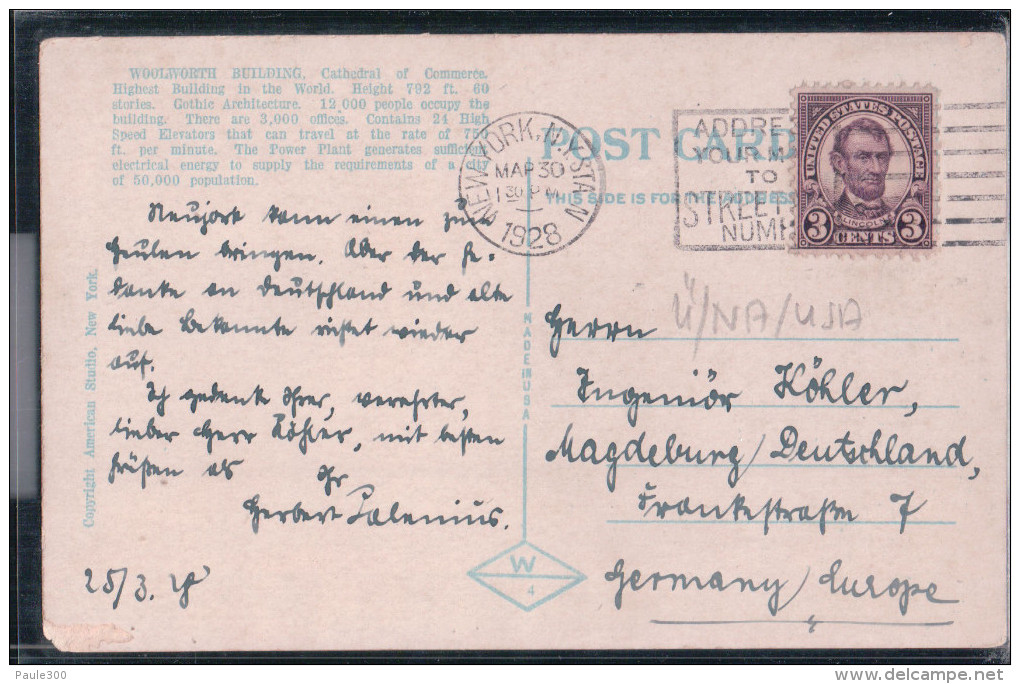 WOOLWORTH BUILDING, Cathedral of Commerce.
Highest Building in the World. Height 792 ft. 60
stories. Gothic Architecture. 12,000 people occupy the
building. There are 3,000 offices. Contains 24 High
Speed Elevators that can travel at the rate of 750
ft. per minute. The Power Plant generates sufficient
electrical energy to supply the requirements of a city
of 50,000 population.
POST CARD
THIS SIDE IS FOR THE ADDRESS
NEW YORK, N.Y. STA. N
MAR 30
1 30 P M
1928
ADDRE
YOUR M
TO
STREET
NUMB
UNITED STATES POSTAGE
LINCOLN
3 CENTS 3
Neujork kann einen zum
Heulen bringen. Aber der Ge-
danke an Deutschland und alte
liebe Bekannte richtet wieder
auf.
Ich gedenke Ihrer, verehrter,
lieber Herr Köhler, mit besten
Grüßen als
Ihr
Herbert
25/3. 28
Copyright American Studio, New York.
MADE IN USA
W
4
Ü/NA/USA
Herrn
Ingeniör Köhler,
Magdeburg/Deutschland,
Frankestraße 7
Germany/Europe
Paule300
www.delcampe.net